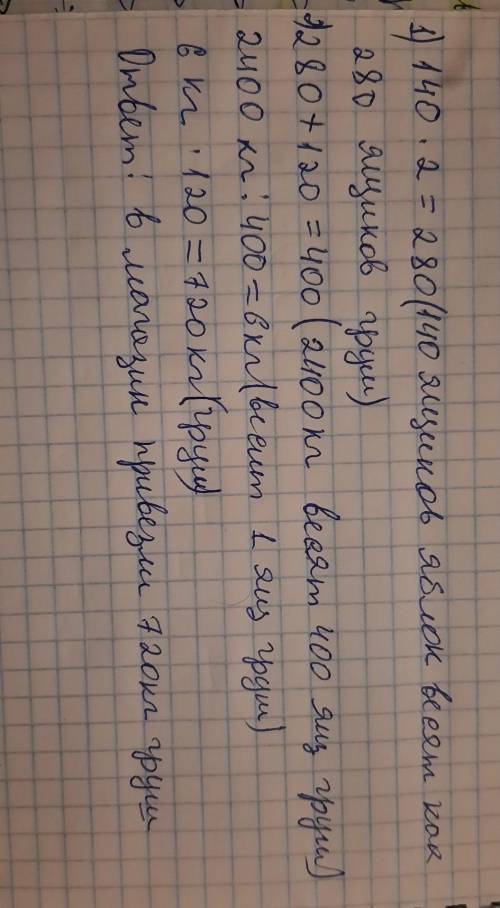 1) 140 · 2 = 280 (140 ящиков яблок весят как
280 ящиков груш)
2) 280 + 120 = 400 (2400 кг весят 400 ящ груш)
2400 кг : 400 = 6 кг (весит 1 ящ груш)
6 кг · 120 = 720 кг (груш)
Ответ: в магазин привезли 720 кг груш